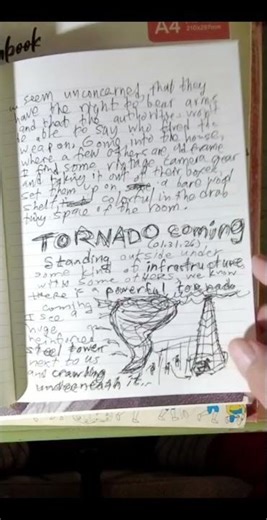 book
A4 210x297mm
seem unconcerned, that they
have the right to bear arms
and that the authorities won't
be able to say who fired the
weapon. Going into the house,
where a few others are
I find some vintage camera gear
and taking it out of their boxes,
set them up on a bare pool
shelf colorful in the drab
tiny space of the room.
TORNADO coming
(01.31.26)
Standing outside under
some kind of infrastructure
with some others, we know
there is a powerful tornado
coming
I
huge,
reinforced
steel tower
next to us
and crawling
underneath it...